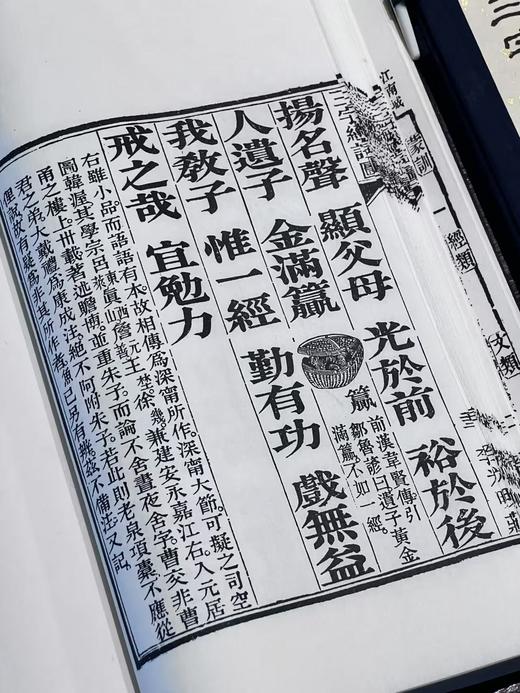 江南城
蒙訓一
經類
文類
揚名聲 顯父母 光於前 裕於後
人遺子 金滿籯
籯
前漢韋賢傳引
鄒魯諺曰遺子黃金
滿籯不如一經。
我敎子 惟一經 勤有功 戲無益
戒之哉 宜勉力
右雖小品。而語語有本。故相傳爲深甯所作。深甯大節。可擬之司空
圖韓渥。其學宗呂東萊真西山詹元善王埜徐幾。兼建安永嘉江右。入元居
甬之樓上卅載。著述贍博。並重朱子。而論不舍晝夜。舍字。曹交非曹
君之弟。大戴禮爲康成注。絕不阿附朱子若此。則老泉項橐不應從
俚說。故有疑爲非其所作者。已另有識茲不備注又記。